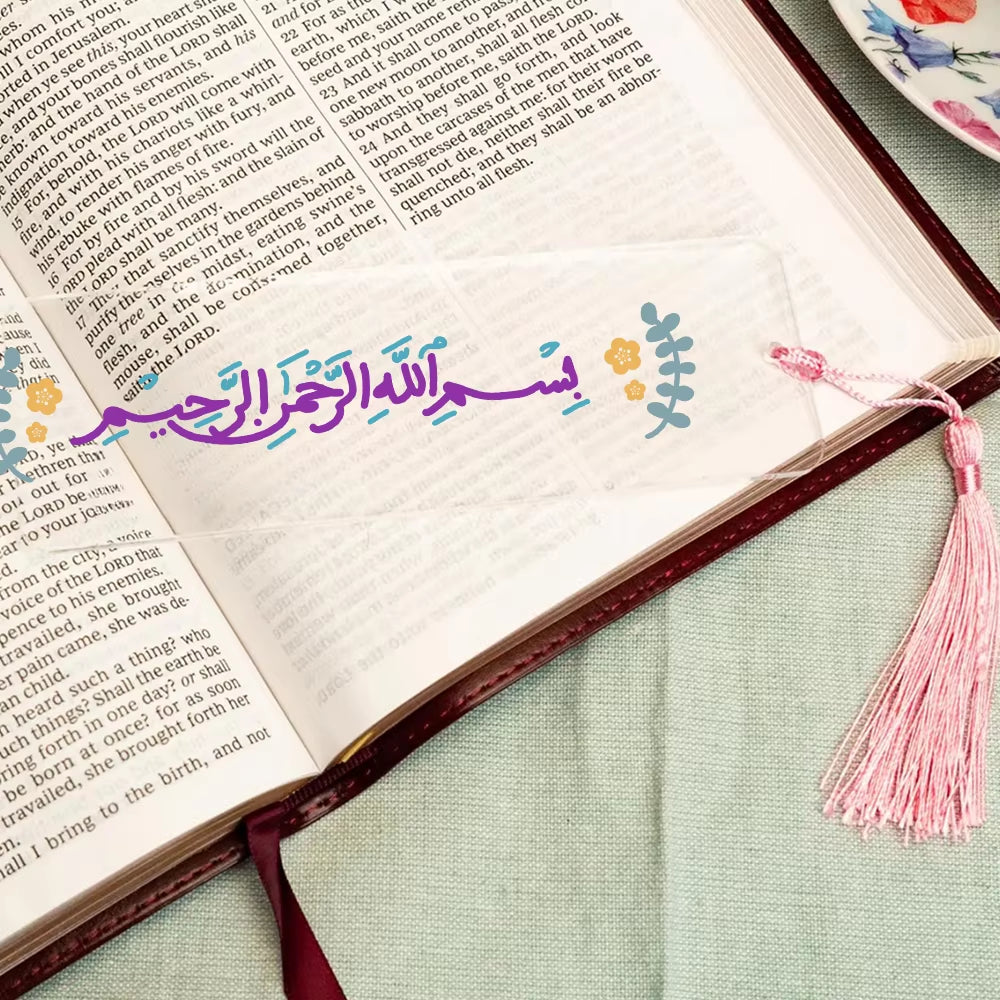 whom his
ll I comfort you;
rted in Jerusalem.
when ye see this, your heart sha
and your bones shall flourish like
herb: and the hand of the LORD shall
known toward his servants, and his
indignation toward his enemies.
15 For, behold, the LORD will come with
fire, and with his chariots like a whirl-
wind, to render his anger with fury, and
his rebuke with flames of fire.
16 For by fire and by his sword will the
LORD plead with all flesh: and the slain of
the LORD shall be many.
17 They that sanctify themselves, and
purify themselves in the gardens behind
one tree in the midst, eating swine's
flesh, and the abomination, and the
mouse, shall be consumed together,
saith the LORD.
21
and for
22 For as the
earth, which I
before me, saith the
seed and your name
23 And it shall come to pass
one new moon to another, and
sabbath to another, shall all flesh
to worship before me, saith the LORD.
24 And they shall go forth, and look
upon the carcases of the men that have
transgressed against me: for their worm
shall not die, neither shall their fire be
quenched; and they shall be an abhor-
ring unto all flesh.
بِسْمِ ٱللَّهِ الرَّحْمَٰنِ الرَّحِيمِ
that in
out for
the LORD be
to your
from the city, a voice
voice of the LORD that
pence to his enemies.
travailed, she brought
er pain came, she was de-
an child.
heard such a thing? who
uch things? Shall the earth be
ring forth in one day? or shall
be born at once? for as soon
travailed, she brought forth her
en.
hall I bring to the birth, and not